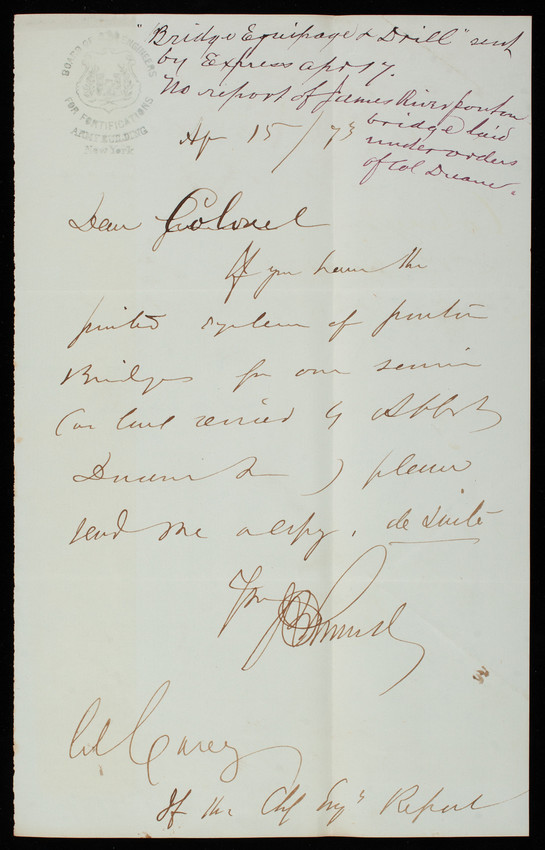 "Bridge Equipage & Drill" sent
by Express apr 17.
No report of James River ponton
bridge laid
under orders
of Col Duane.
BOARD OF ENGINEERS
FOR FORTIFICATIONS
ARMY BUILDING
New York
Ap 15/73
Dear Colonel
If you have the
printed system of ponton
Bridges for our service
(as last revised by Abbot
Duane &c) please
send me a copy, de suite
Col Casey
Of the Chf Engrs Report